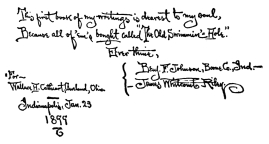 This first book of my writings is dearest to my soul,
Because all of 'em's bought called "The Old Swimmin'-Hole."
Ever thine,
Benj. F. Johnson, Boone Co. Ind.—
James Whitcomb Riley
For—
Ohio
Indianapolis, Jan. 23
1899